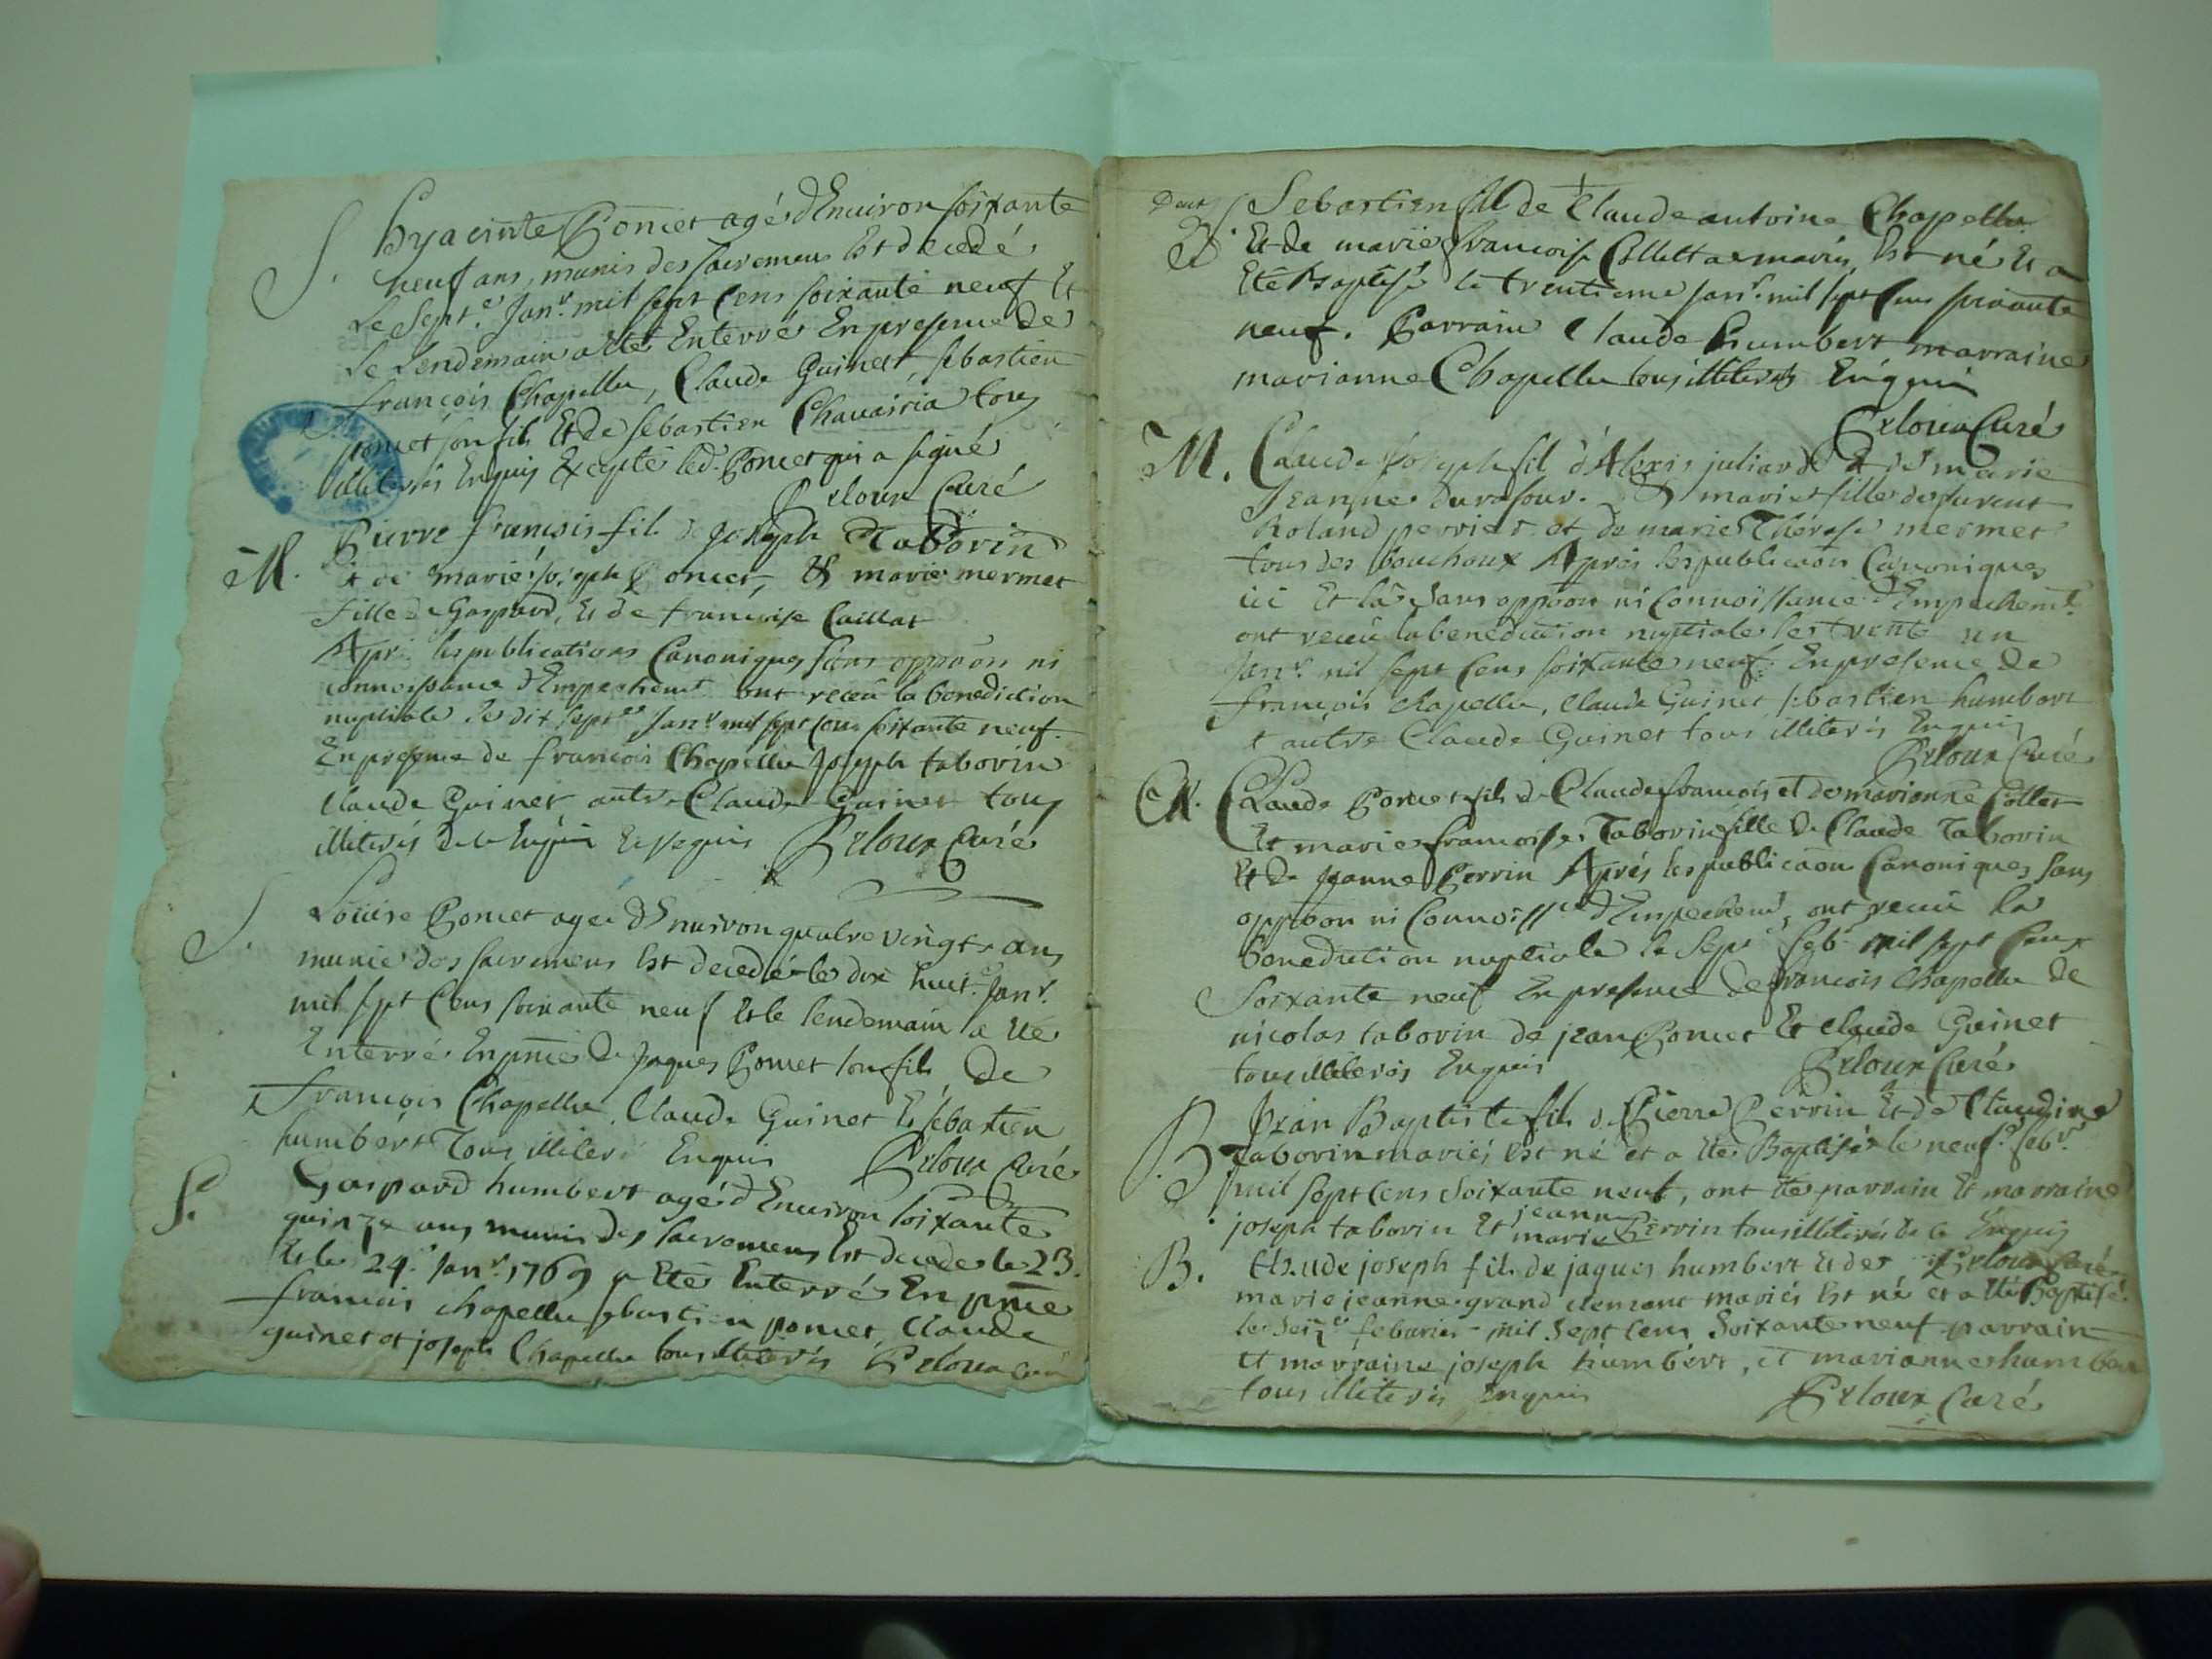 S. Hyacinte Poncet agé d'Environ soixante
neuf ans, munis des sacremens Est decedé
Le sept.e Janv. mil sept cens soixante neuf Et
Le Lendemain a Eté Enterré En presence de
françois Chapellu, Claude Guinet, sebastien
poncet son fils Et de sebastien tous
illiterés Enquis Excepté led. Poncet qui a signé
curé
M. Pierre françois fils de Joseph Taborin
et de marie joseph Poncet, & marie mermet
fille de Gaspard, Et de francoise Caillat
Apré les publications Canoniques sans oppoon ni
connoissance d'Empechemt ont receu la benediction
nuptiale le dix sept.e Janv. mil sept cens soixante neuf.
En presence de francois Chapellu Joseph taborin
Claude Guinet autre Claude Guinet tous
illiterés de le Enquis curé
S. Louise Poncet agée d'Environ quatre vingt ans
munie des sacremens Est decedée le dix huit.e Janv.
mil sept Cens soixante neuf Et le lendemain a eté
Enterrée En pnce de Jaques Poncet son fils de
francois Chapellu, Claude Guinet Et sebastien
humbert Tous illiteré Enquis curé
S. Gaspard humbert agé d'Environ soixante
quinze ans munis des sacremens Est decedé le 23.
Et le 24.e Janv. 1769 a Eté Enterré En pnce
francois chapellu sebastien poncet, Claude
guinet et joseph Chapellu tous illiterés
B. Sebastien fils de Claude antoine Chapellu
Et de marie francoise Collet mariés Est né Et a
Eté Baptisé le trentieme janv. mil sept cens soixante
neuf. Parrain Claude humbert marraine
marianne Chapellu tous illiterés Enquis
Curé
M. Claude joseph fils d'Alexis juliard & de marie
Jeanne & marie fille de furent
Roland perrier et de marie Therese mermet
tous des bouchoux Apres les publicaons Canoniques
ici Et là sans oppoon ni Connoissance d'Empechemt
ont receu la benediction nuptiale le trente un
Janv. mil sept Cens soixante neuf: En presence de
françois Chapellu, Claude Guinet sebastien humbert
& autre Claude Guinet tous illiterés Enquis
Curé
M. Claude Poncet fils de Claude francois et de marianne Collet
Et marie francoise Taborin fille de Claude Taborin
Et de Jeanne Perrin Aprés les publicaon Canoniques sans
oppoon ni Connoissce d'Empechemt, ont receu la
benediction nuptiale le sept.e feb. mil sept Cens
soixante neuf En presence de francois Chapellu de
nicolas taborin de jean Poncet Et Claude Guinet
tous illiterés Enquis Curé
B. Jean Baptiste fils de Pierre Perrin Et de Claudine
Taborin mariés Est né et a eté Baptisé le neuf.e febr.
mil sept Cens soixante neuf, ont eté parrain Et marraine
jeanne
joseph taborin Et marie Perrin tous illiterés de le Enquis
B. Claude joseph fils de jaques humbert et de
marie jeanne grand clement mariés Est né et a eté Baptisé
le febvrier mil sept cens soixante neuf parrain
et marraine joseph humbert, et marianne humbert
tous illiterés Enquis Curé